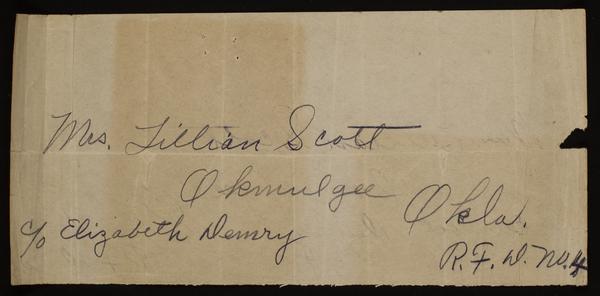 Mrs. Lillian Scott
Okmulgee Okla.
c/o Elizabeth Demry
R.F.D. No. 4